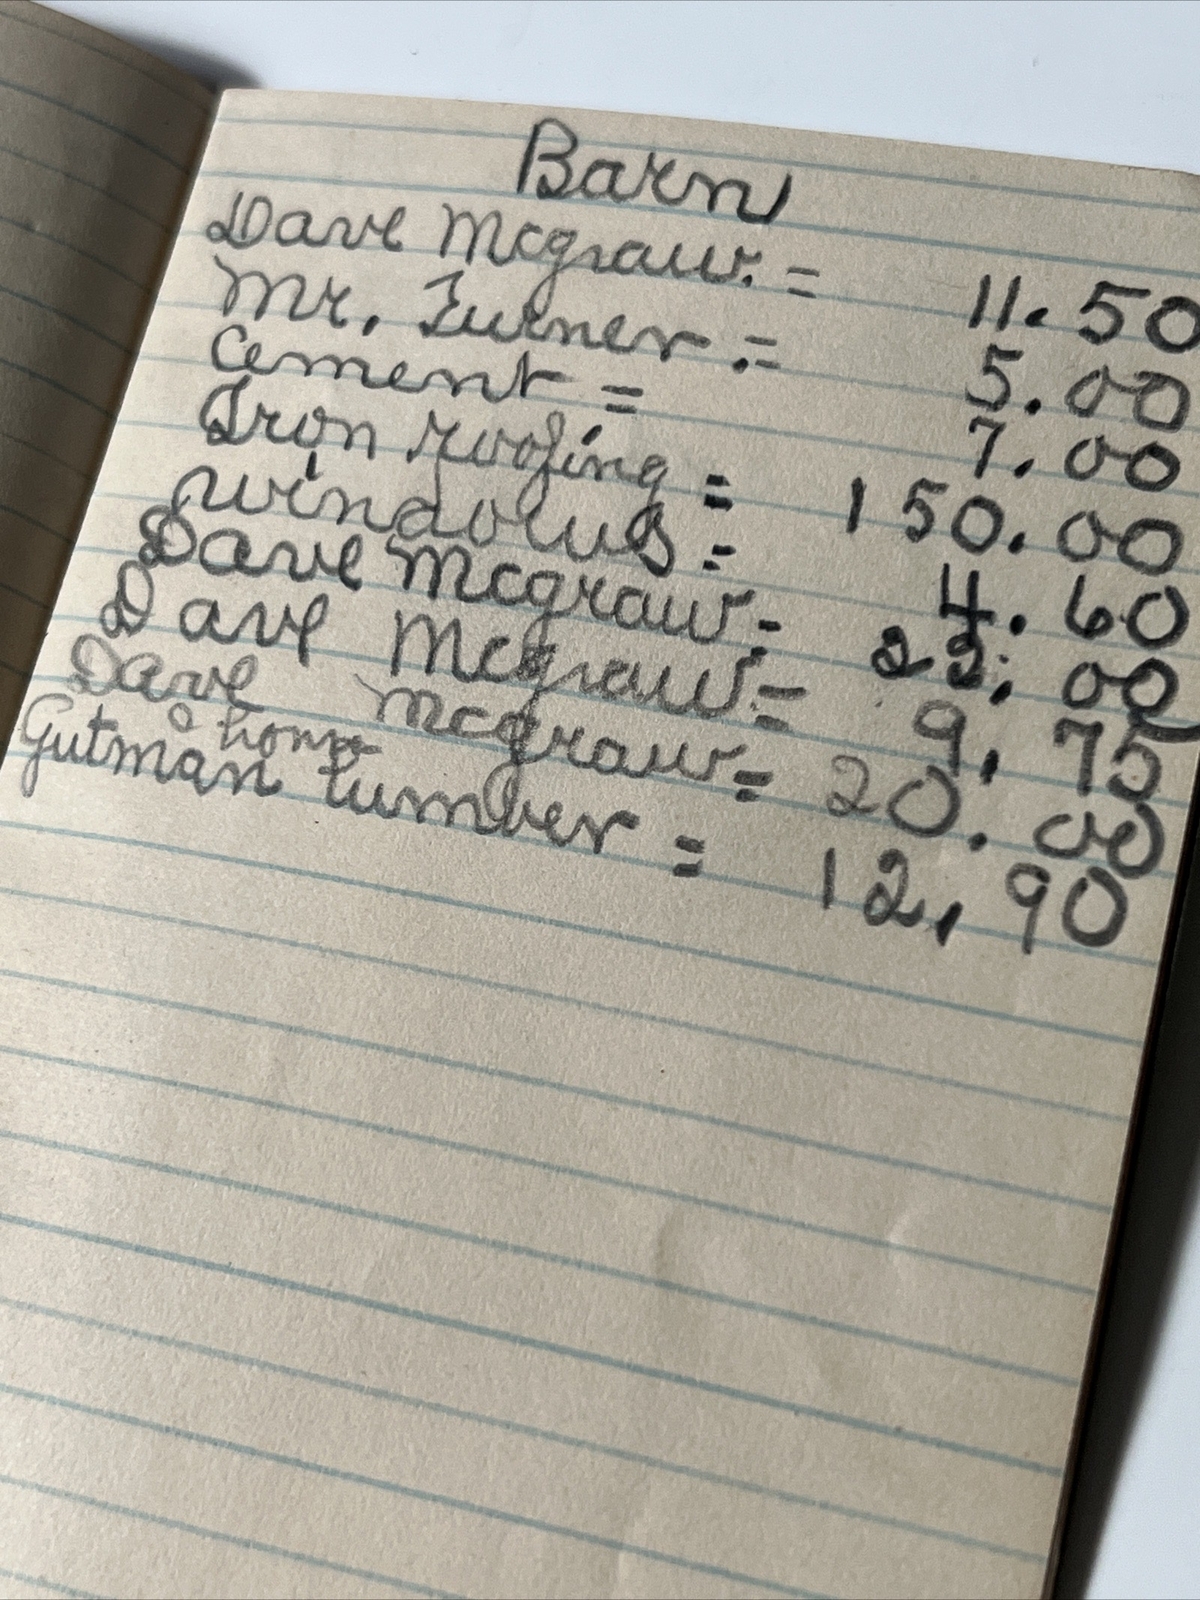 Barn
Dave Mcgraw. = 11.50
Mr. Turner. = 5.00
Cement = 7.00
Iron roofing = 150.00
windows = 4.60
Dave Mcgraw = 22.00
Dave Mcgraw = 9.75
Dave Mcgraw = 20.00
Gutman lumber = 12.90